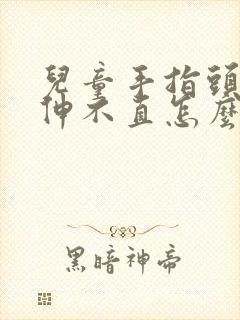 兒童手指頭
伸不直怎麼
黑暗神帝